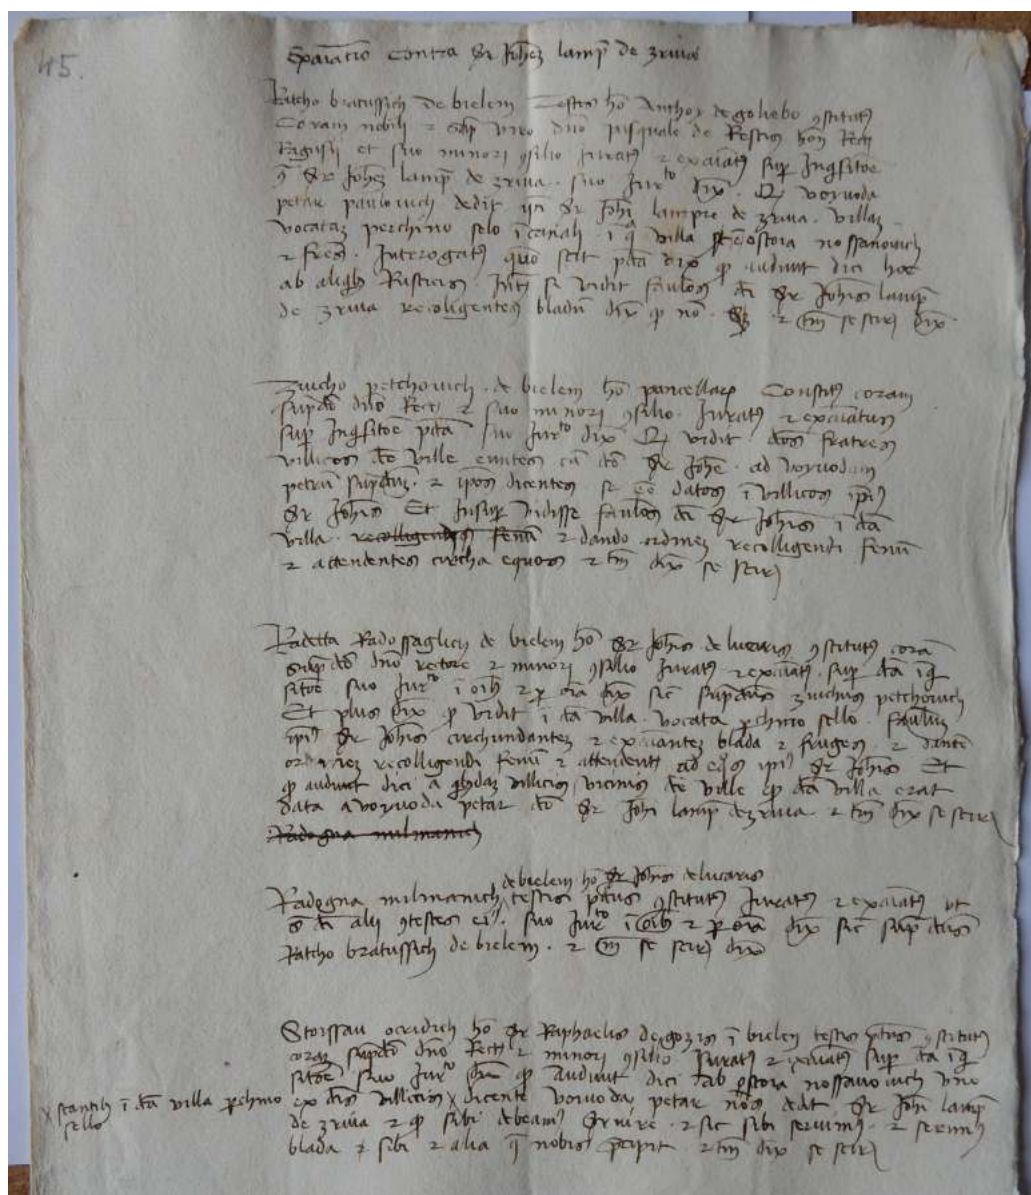 45.
Exaiatio contra Sr Johez lamp de zrieva
Ratcho bratussich de bielem Testis ho Anthoy de goliebo 9stitut9
Coram nobili et sap viro dno pasquale de Restis hon Rect
Ragusij et suo minori 9silio Jurat9 et exaiat9 sup Inqsitoe
9 Sr Johez lamp de zrieva. suo Jurto dix. Q voyvoda
petar paulovich dedit Sr Johi lampre de zrieva. villaz
vocataz perchino selo i canali. i q villa pstora nossanovich
et fres. Interogat9 quo scit pdta dix q audivit dici hoc
ab aliqbs Rusticis. Int9 si vidit famlos dti Sr Johis lamp
de zrieva recoligentes bladu dix q no. et tm se scire dix.
Zuicho petchovich. de bielem ho pancellar Constit9 coram
supdto dno Rect et suo minori 9silio. Jurat9 et exaiatus
sup Inqsitoe pdta suo Jurto dix Q vidit dtos fratres
villicos dte ville euntes cu dto Sr Johe. ad voyvodam
petru supdtuz. et ipos dicentes se ee datos i villicos ipi9
Sr Johis Et Insup vidisse famlos dti Sr Johis i dta
villa. recolligentes fenu et dando ordinez recolligendi fenu
et attendentes circha equos et tm dix se scire
Radetta Radossaglich de bielem ho Sr Johis de lucaris 9stitut9 cora
supdto dno rectore et minori 9silio Jurat9 et exaiat9. sup dta iq
sitoe suo Jurto i oib9 et p oia dix sic supdtus zuichus petchovich
Et plus dix q vidit i dta villa. vocata pchino sello. famluz
ipi9 Sr Johis circhundantez et exaiantez blada et fruges. et dante
ordinez recolligendi fenu et attendente ad eqos ipi9 Sr Johis Et
q audivit dici a qbdaz villicis vicinis dte ville q dta villa erat
data a voyvoda petar dto Sr Johi lamp de zrieva. et tm dix se scire
Radogna milmanich
de bielem ho Sr Johis de lucaris
Radogna milmanich testis pdtus 9stitut9 Jurat9 et exaiat9 ut
s dti alij 9testes ei9. suo Jurto i oib9 et p oia dix sic supdtus
Ratcho bratussich de bielem. et tm se scire dix
Stoissau ocridich ho Sr Raphaelis de gozis i bielem testis pdtus 9stitut9
coraz supdto dno Rect et minori 9silio Jurat9 et exaiat9 sup dta iq
sitoe suo Jurto dix q audivit dici ab pstora nossanovich uno
x stantib i dta villa pchino ex dtis villicis x dicente voivoda petar nos dedit Sr Johi lamp
sello
de zrieva et q sibi debeam9 servire. et sic sibi servim9. et semin9
blada et sibi et alia q nobis pcipit et tm dix se scire